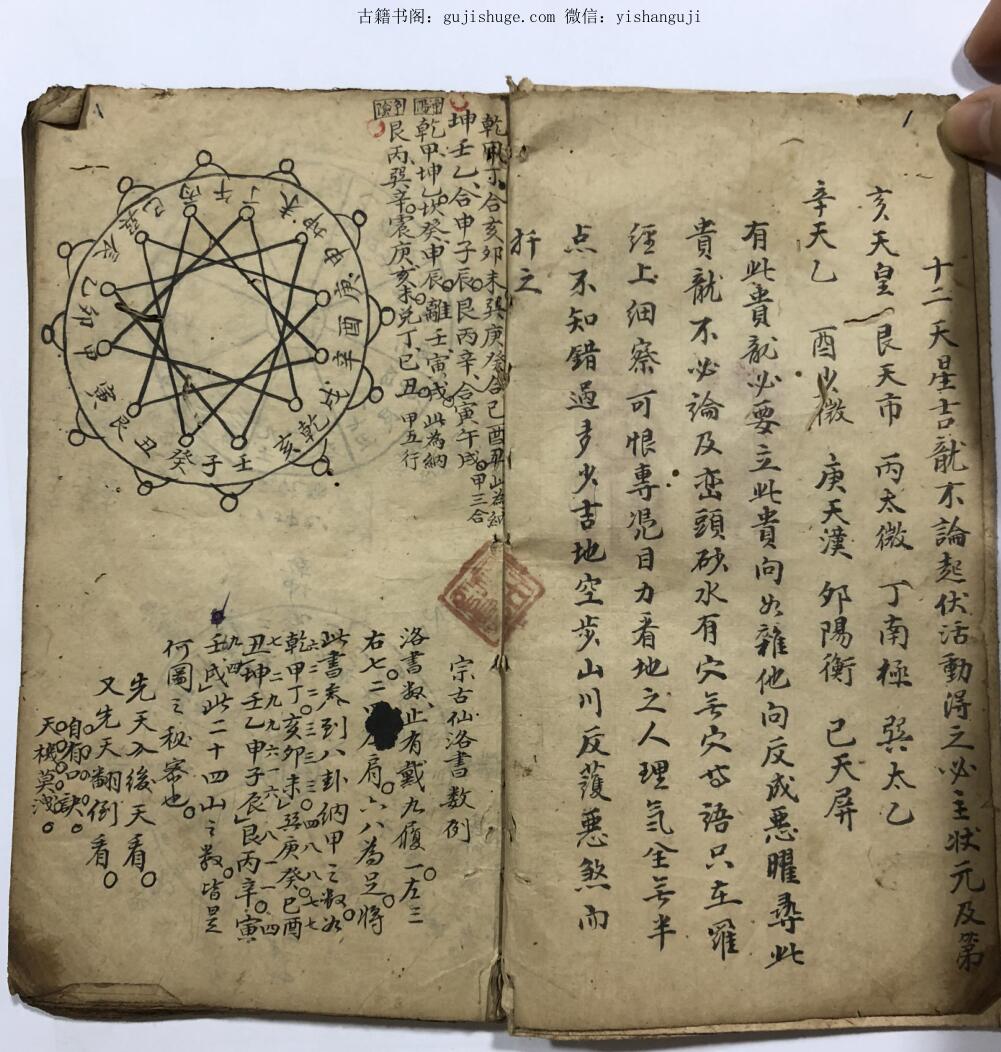 古籍书阁：gujishuge.com 微信：yishanguji
十二天星吉龍不論起伏活動得之必主状元及第
亥天皇 艮天市 丙太微 丁南極 巽太乙
辛天乙 酉少微 庚天漢 夘陽衡 巳天屏
有此貴龍必要立此貴向如雜他向反成惡曜尋此
貴龍不必論及巒頭砂水有穴無穴等語只在羅
經上細察可恨專凴目力看地之人理氣全無半
点不知錯過多少吉地空步山川反護惡煞而
扦之
乾甲丁合亥卯未巽庚癸合巳酉丑此為納
坤壬乙合申子辰艮丙辛合寅午戌甲三合
乾甲坤乙坎癸申辰離壬寅戌此為納
艮丙巽辛震庚亥未兌丁巳丑甲五行
丙午丁未坤申庚酉辛戌乾亥壬子癸丑艮寅甲卯乙辰巽巳
宗古仙洛書数例
洛書数止有戴九履一左三
右七二肩六八為足將
此書叅到八卦納甲之数如
乾甲丁亥卯未巽庚癸巳酉
丑坤壬乙甲子辰艮丙辛寅
此二十四山之数皆是
何圖之秘宻也
先天入後天看
又先天翻倒看
自有口訣
天機莫洩